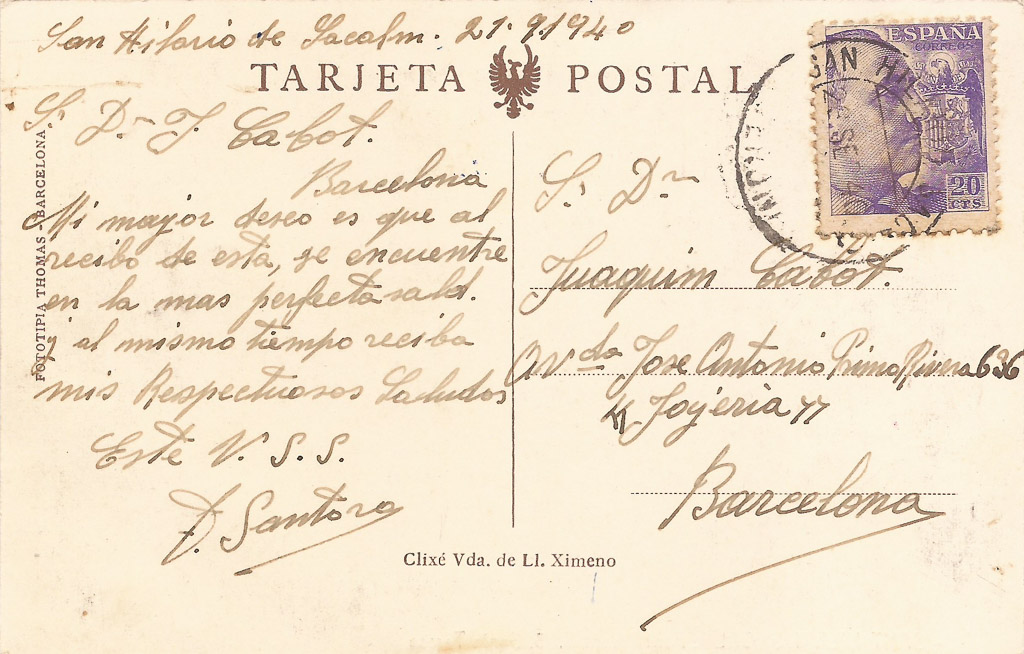 San Hilario de Sacalm. 21.9.1940
TARJETA POSTAL
ESPAÑA
CORREOS
20
CTS
SAN HIL
Sr. Dn J. Cabot.
Barcelona
Mi mayor deseo es que al
recibo de esta, se encuentre
en la mas perfecta sald.
y al mismo tiempo reciba
mis Respectuosos Saludos
Este V. S. S.
F. Santoro
FOTOTIPIA THOMAS - BARCELONA.
Sr. Dn
Juaquim Cabot.
Avda Jose Antonio Primo Rivera 636
"Joyeria"
Barcelona
Clixé Vda. de Ll. Ximeno